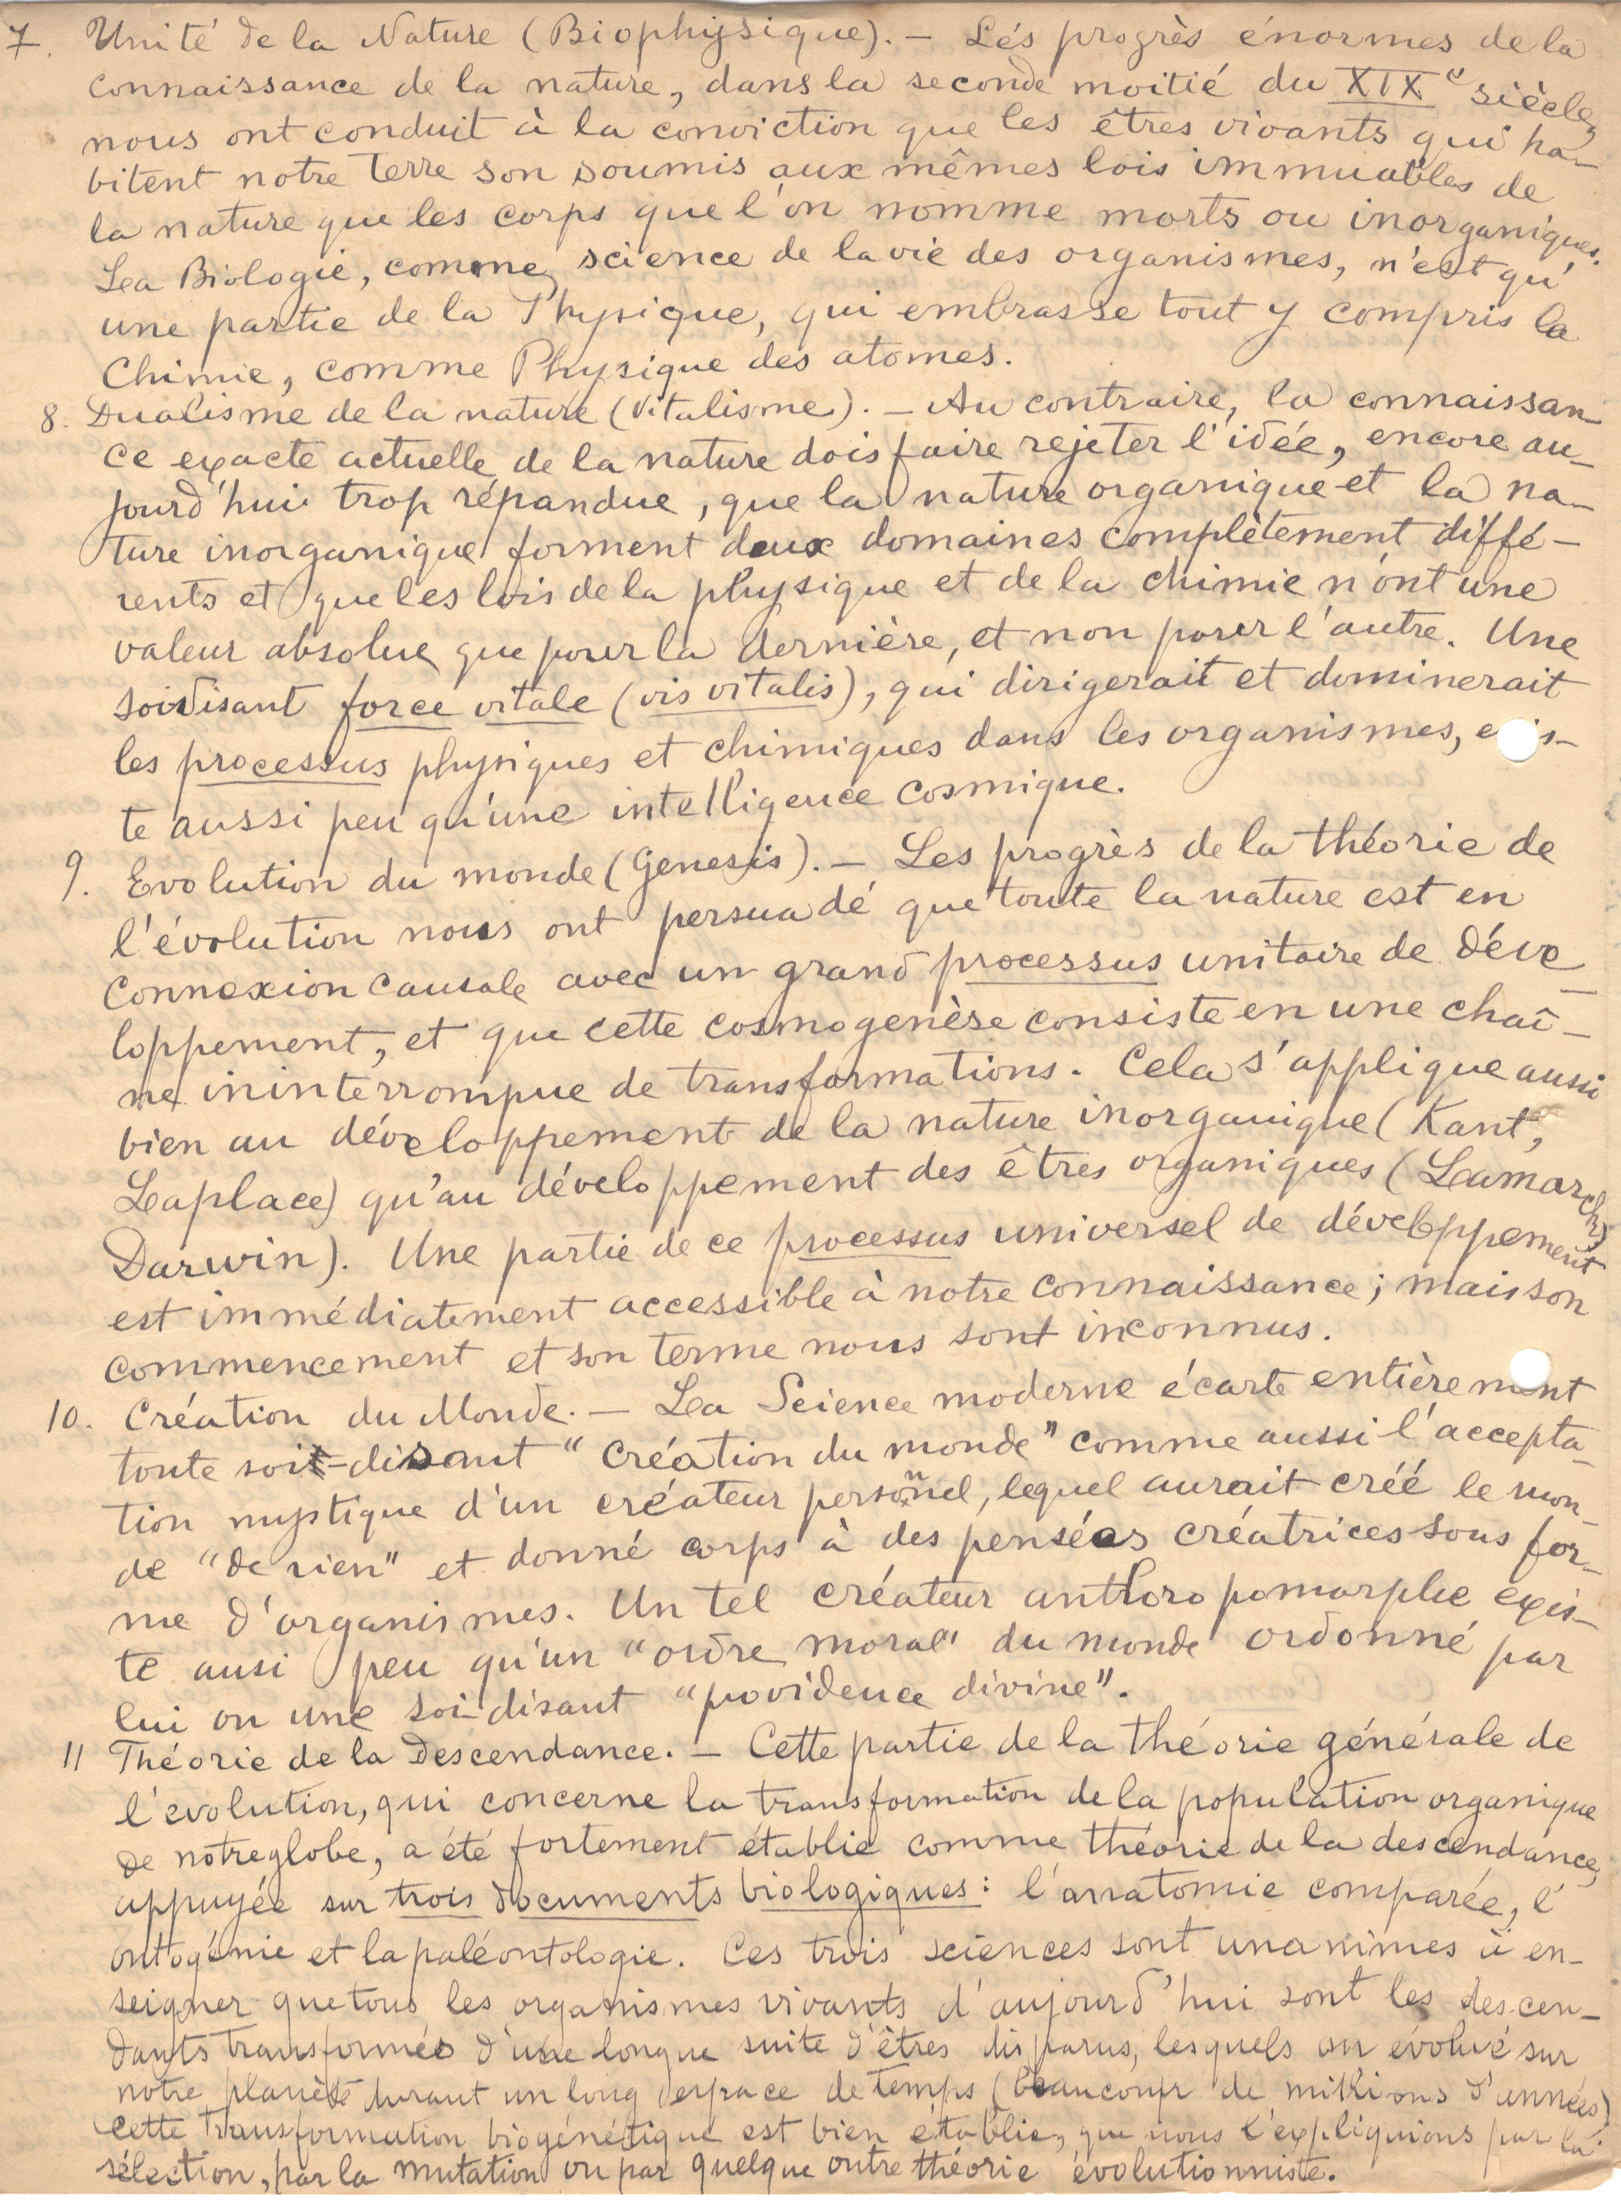 7. Unité de la Nature (Biophysique). — Les progrès énormes de la
connaissance de la nature, dans la seconde moitié du XIXe siècle,
nous ont conduit à la conviction que les êtres vivants qui ha-
bitent notre terre son soumis aux mêmes lois immuables de
la nature que les corps que l'on nomme morts ou inorganiques.
La Biologie, comme science de la vie des organismes, n'est qu'
une partie de la Physique, qui embrasse tout y compris la
Chimie, comme Physique des atomes.
8. Dualisme de la nature (Vitalisme). — Au contraire, la connaissan-
ce exacte actuelle de la nature dois faire rejeter l'idée, encore au-
jourd'hui trop répandue, que la nature organique et la na-
ture inorganique forment deux domaines complètement diffé-
rents et que les lois de la physique et de la chimie n'ont une
valeur absolue que pour la dernière, et non pour l'autre. Une
soidisant force vitale (vis vitalis), qui dirigerait et dominerait
les processus physiques et chimiques dans les organismes, exis-
te aussi peu qu'une intelligence cosmique.
9. Evolution du monde (Genesis). — Les progrès de la théorie de
l'évolution nous ont persuadé que toute la nature est en
connexion causale avec un grand processus unitaire de déve-
loppement, et que cette cosmogenèse consiste en une chaî-
ne ininterrompue de transformations. Cela s'applique aussi
bien au développement de la nature inorganique (Kant,
Laplace) qu'au développement des êtres organiques (Lamarck,
Darwin). Une partie de ce processus universel de développement
est immédiatement accessible à notre connaissance; mais son
commencement et son terme nous sont inconnus.
10. Création du Monde. — La Science moderne écarte entièrement
toute soit-disant "création du monde" comme aussi l'accepta-
tion mystique d'un créateur personnel, lequel aurait créé le mon-
de "de rien" et donné corps à des pensées créatrices sous for-
me d'organismes. Un tel créateur anthoropomorphe exis-
te ausi peu qu'un "ordre moral" du monde ordonné par
lui ou une soi-disant "providence divine".
11 Théorie de la Descendance. — Cette partie de la théorie générale de
l'evolution, qui concerne la transformation de la population organique
de notre globe, a été fortement établie comme théorie de la descendance,
appuyée sur trois documents biologiques: l'anatomie comparée, l'
ontogénie et la paléontologie. Ces trois sciences sont unanimes à en-
seigner que tous les organismes vivants d'aujourd'hui sont les descen-
dants transformés d'une longue suite d'êtres disparus, lesquels on évolué sur
notre planète durant un long espace de temps (beaucoup de millions d'années)
Cette transformation biogénétique est bien établie, que nous l'expliquions par la
sélection, par la mutation ou par quelque outre théorie évolutionniste.